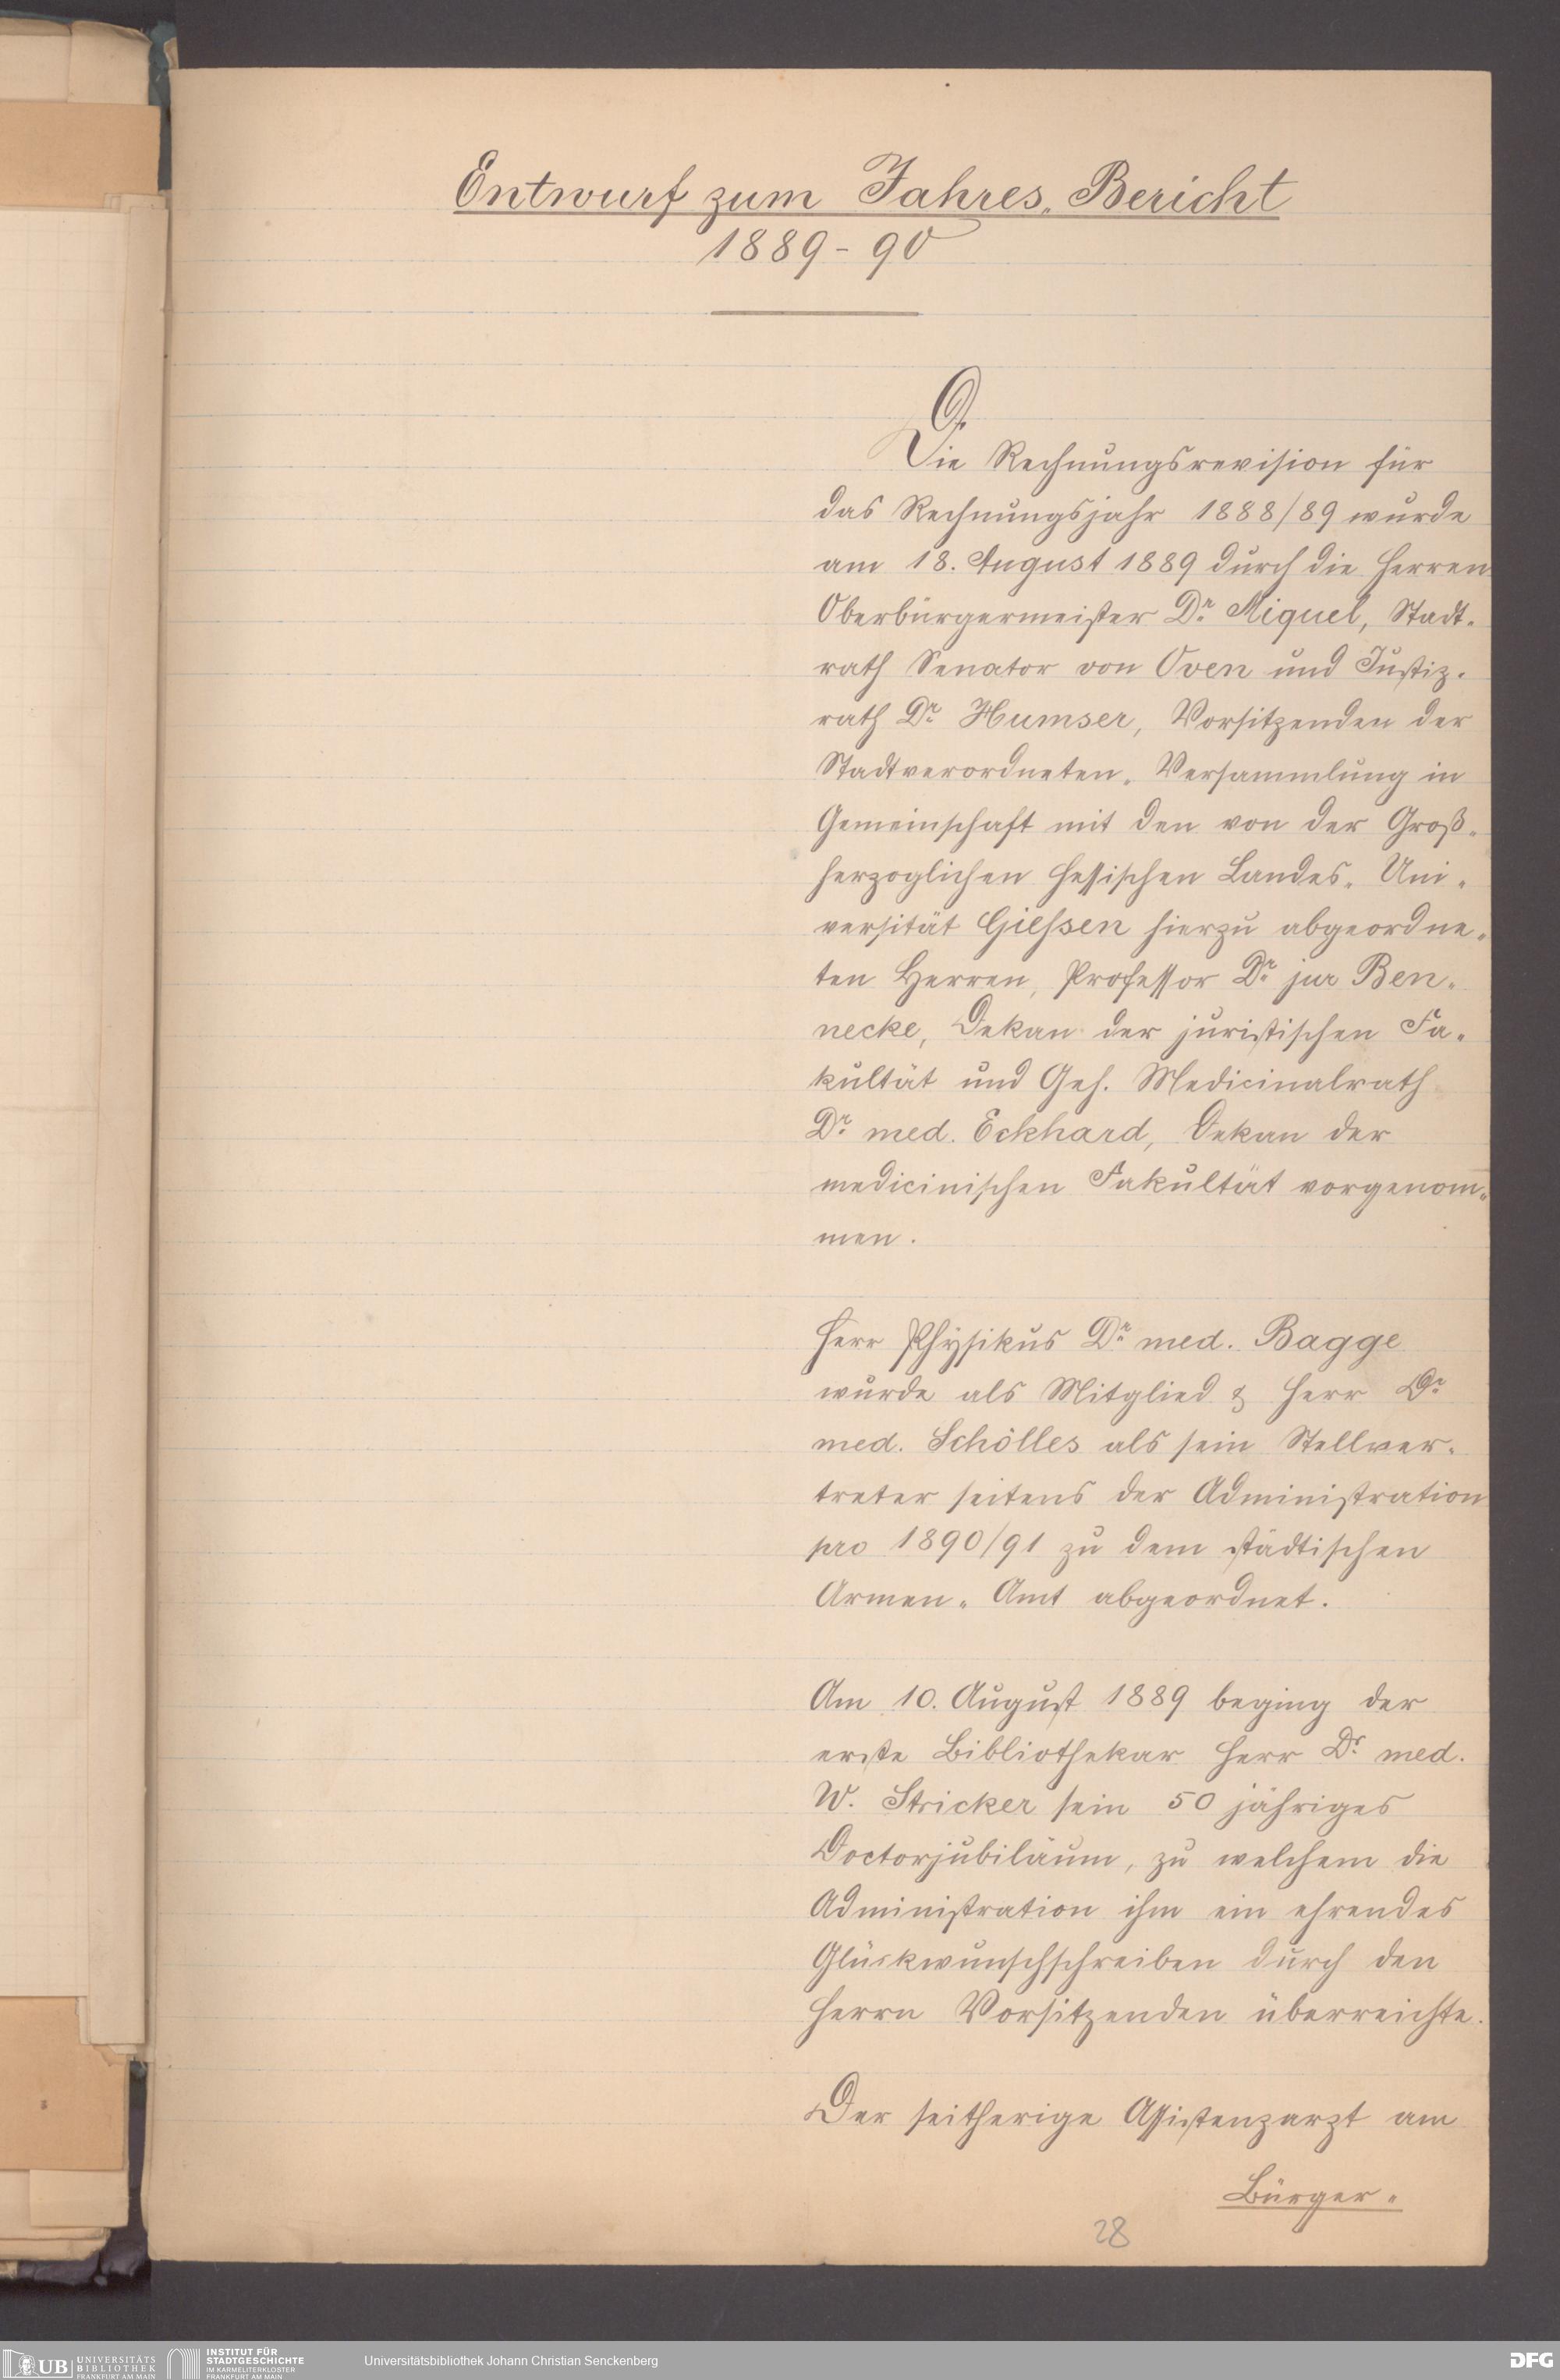 Entwurf zum Jahres-Bericht
1889-90
Die Rechnungsrevision für
das Rechnungsjahr 1888/89 wurde
am 18. August 1889 durch die Herren
Oberbürgermeister Dr. Miquel, Stadt-
rath Senator von Oven und Justiz-
rath Dr. Humser, Vorsitzenden der
Stadtverordneten-Versammlung in
Gemeinschaft mit den von der Groß-
herzoglichen hessischen Landes-Uni-
versität Giessen hierzu abgeordne-
ten Herren, Professor Dr. jur Ben-
necke, Dekan der juristischen Fa-
kultät und Geh. Medicinalrath
Dr. med. Eckhard, Dekan der
medicinischen Fakultät vorgenom-
men.
Herr Physikus Dr. med. Bagge
wurde als Mitglied & Herr Dr.
med. Schölles als sein Stellver-
treter seitens der Administration
pro 1890/91 zu dem städtischen
Armen-Amt abgeordnet.
Am 10. August 1889 beging der
erste Bibliothekar Herr Dr. med.
W. Stricker sein 50 jähriges
Doctorjubiläum, zu welchem die
Administration ihm ein ehrendes
Glückwunschschreiben durch den
Herrn Vorsitzenden überreichte.
Der seitherige Assistenzarzt am
Bürger-
28
UB UNIVERSITÄTS
BIBLIOTHEK
FRANKFURT AM MAIN
INSTITUT FÜR
STADTGESCHICHTE
IM KARMELITERKLOSTER
FRANKFURT AM MAIN
Universitätsbibliothek Johann Christian Senckenberg
DFG